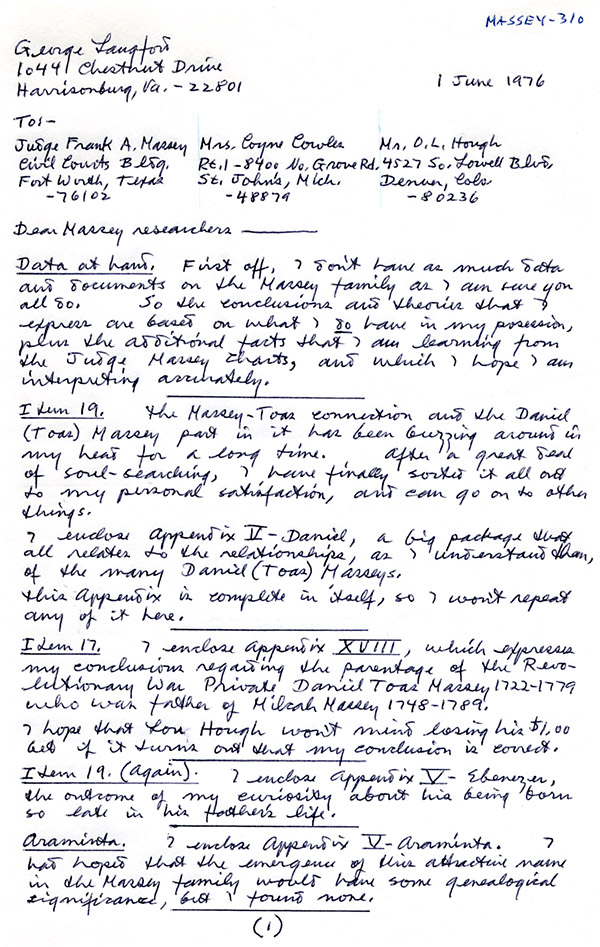 MASSEY-310
George Langford
1044 Chestnut Drive
Harrisonburg, Va. - 22801
1 June 1976
To:-
Judge Frank A. Massey
Civil Courts Bldg.
Fort Worth, Texas
-76102
Mrs. Coyne Cowles
Rt. 1 - 8400 No. Grove Rd.
St. Johns, Mich.
-48879
Mr. O.L. Hough
4527 So. Lowell Blvd,
Denver, Colo
-80236
Dear Massey researchers
Data at hand. First off, I don't have as much data
and documents on the Massey family as I am sure you
all do. So the conclusions and theories that I
express are based on what I do have in my posession,
plus the additional facts that I am learning from
the Judge Massey charts, and which I hope I am
interpreting accurately.
Item 19. The Massey-Toas connection and the Daniel
(Toas) Massey part in it has been buzzing around in
my head for a long time. After a great deal
of soul-searching, I have finally sorted it all out
to my personal satisfaction, and can go on to other
things.
I enclose Appendix V - Daniel, a big package that
all relates to the relationships, as I understand them,
of the many Daniel (Toas) Masseys.
This Appendix is complete in itself, so I won't repeat
any of it here.
Item 17. I enclose Appendix XVIII, which expresses
my conclusions regarding the parentage of the Revo-
lutionary War Private Daniel Toas Massey 1722-1779
who was father of Milcah Massey 1748-1789.
I hope that Lou Hough won't mind losing his $1.00
bet if it turns out that my conclusion is correct.
Item 19. (Again). I enclose Appendix V - Ebenezer,
the outcome of my curiosity about his being born
so late in his father's life.
Araminta. I enclose Appendix V-Araminta. I
had hoped that the emergence of this attractive name
in the Massey family would have some genealogical
significance, but I found none.
(1)